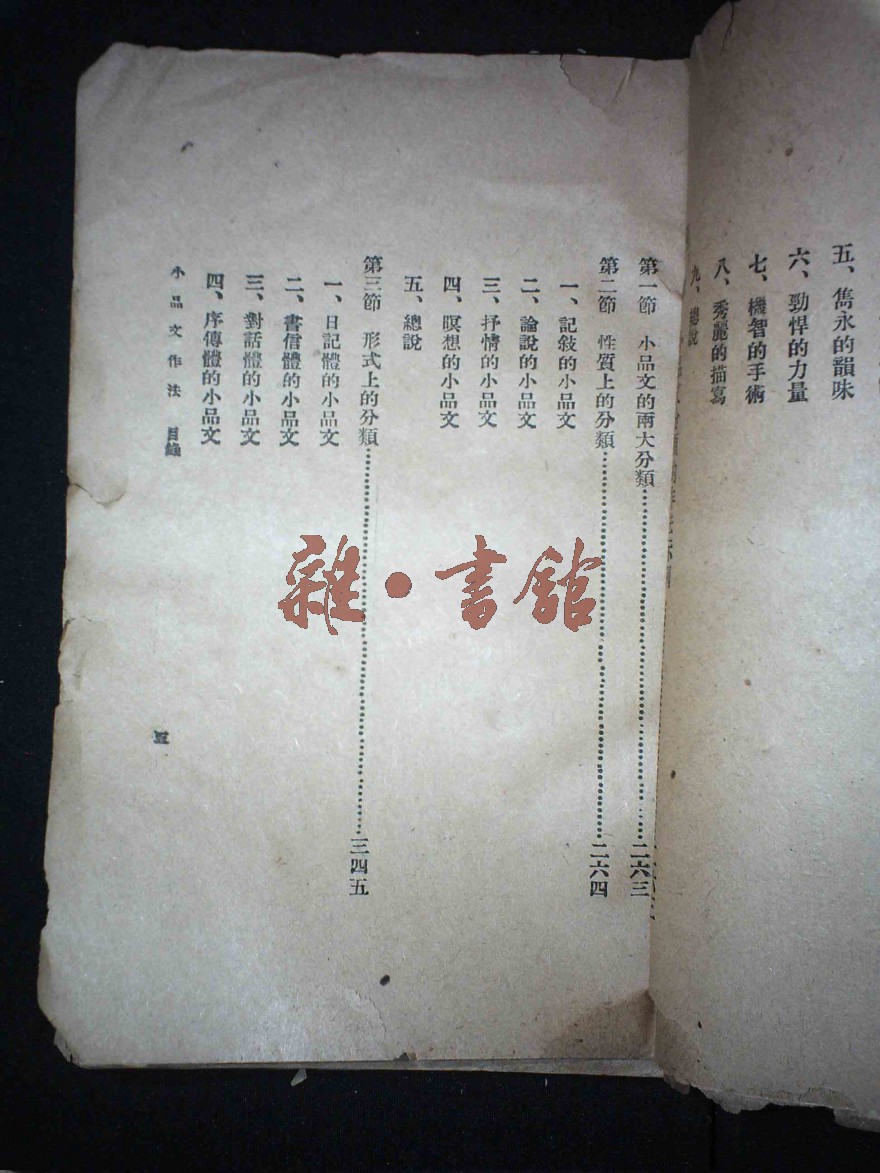 五、雋永的韻味
六、勁悍的力量
七、機智的手術
八、秀麗的描寫
九、總說
第一節 小品文的兩大分類……二六三
第二節 性質上的分類……二六四
一、記敍的小品文
二、論說的小品文
三、抒情的小品文
四、瞑想的小品文
五、總說
第三節 形式上的分類……三四五
一、日記體的小品文
二、書信體的小品文
三、對話體的小品文
四、序傳體的小品文
小品文作法 目錄
五
雜·書館